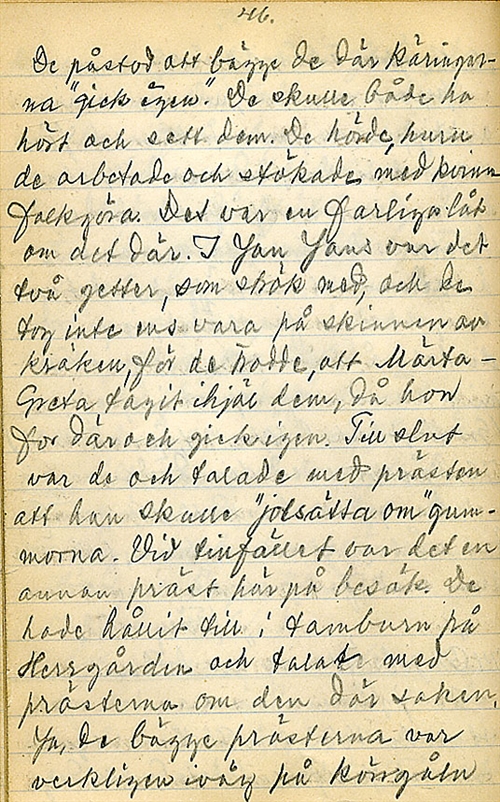 46.
De påstod att bägge de där käringar-
na "gick igen". De skulle både ha
hört och sett dem. De hörde, huru
de arbetade och stökade med kvinn
folkgöra. Det var en farliga låt
om det där. I Jan Jans var det
två getter, som strök med, och de
tog inte ens vara på skinnen av
kräken, för de trodde, att Märta-
Greta tagit ihjäl dem, då hon
for där och gick igen. Till slut
var de och talade med prästen
att han skulle "jolsätta om" gum-
morna. Vid tillfället var det en
annan präst här på besök. De
hade hållit till i tamburn på
Herrgården och talat med
prästerna om den där saken.
Ja, de bägge prästerna var
verkligen iväg på körrgåln